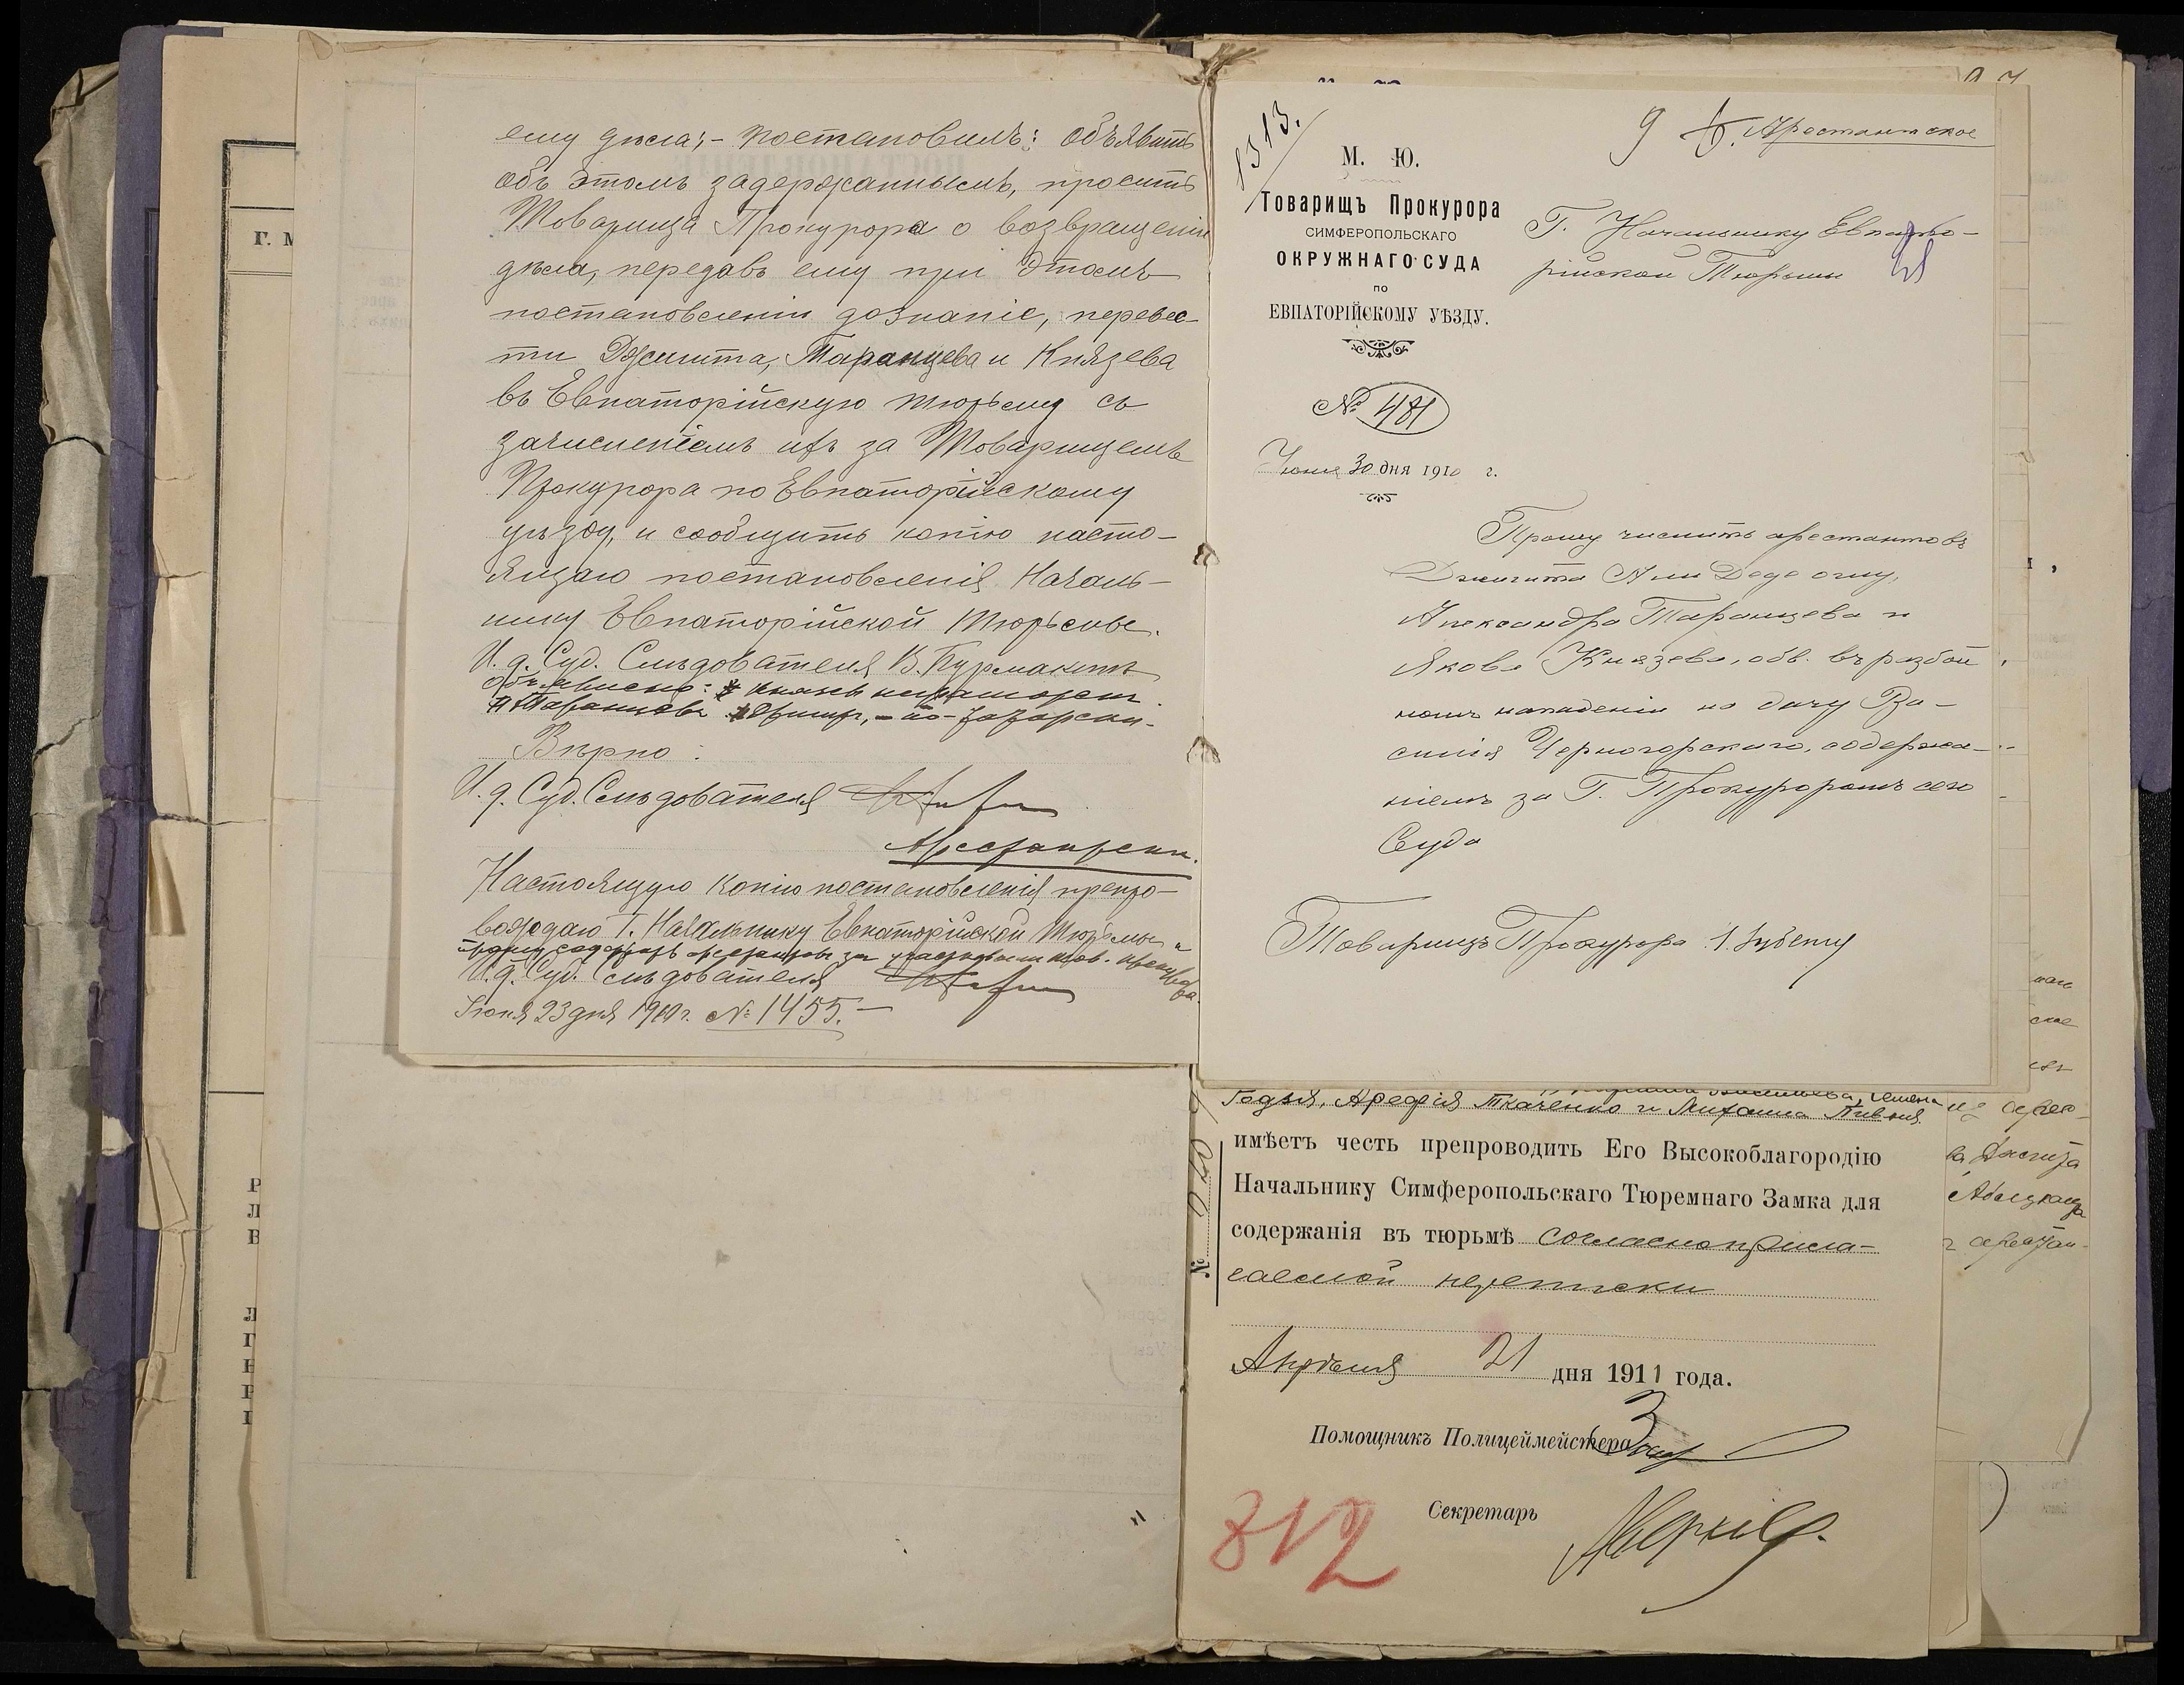 ему дѣла;- постановилъ: Объявить
объ этомъ задержаннымъ, просить
Товарища Прокурора о возвращеніи
дѣла, передавъ ему при этомъ
постановленіи дознаніе, перевес-
ти Джигита, Таранцева и Князева
въ Евпаторійскую тюрьму съ
зачисленіемъ ихъ за Товарищемъ
Прокурора по Евпаторійскому
уѣзду, и сообщить копію насто-
ящаго постановленія Началь-
нику Евпаторійской Тюрьмы.
И. д. Суд. Слѣдователя В.
Объявлено: Князевъ неграмотенъ
Таранцевъ
Вѣрно:
И. д. Суд. Слѣдователя
Арестантское.
Настоящую копію постановленія препро-
вождаю Г. Начальнику Евпаторійской Тюрьмы и
прошу содержать арестантовъ за участковымъ тов. Прокурора.
И. д. Суд. Слѣдователя
Іюня 23 дня 1910 г. № 1455.-
Г. М
Р
Л
В
Л
Г
Н
Р
1513.
9
Арестантское
М. Ю.
Товарищъ Прокурора
СИМФЕРОПОЛЬСКАГО
ОКРУЖНАГО СУДА
ПО
ЕВПАТОРІЙСКОМУ УѢЗДУ.
№ 481
Іюня 30 дня 1910 г.
Г. Начальнику Евпато-
рійской Тюрьмы
Прошу числить арестантовъ
Джигита Али Деде оглу,
Александра Таранцева и
Якова Князева, обв. въ разбой
номъ нападеніи на дачу Ва-
силія Черногорскаго, содержа-
ніемъ за Г. Прокуроромъ сего
Суда
Товарищъ Прокурора
Арефія Ткаченко и Михаила Пивня
имѣетъ честь препроводить Его Высокоблагородію
Начальнику Симферопольскаго Тюремнаго Замка для
содержанія въ тюрьмѣ согласно прила-
гаемой переписки
Апрѣля 21 дня 1911 года.
Помощникъ Полицеймейстера
Секретарь
312